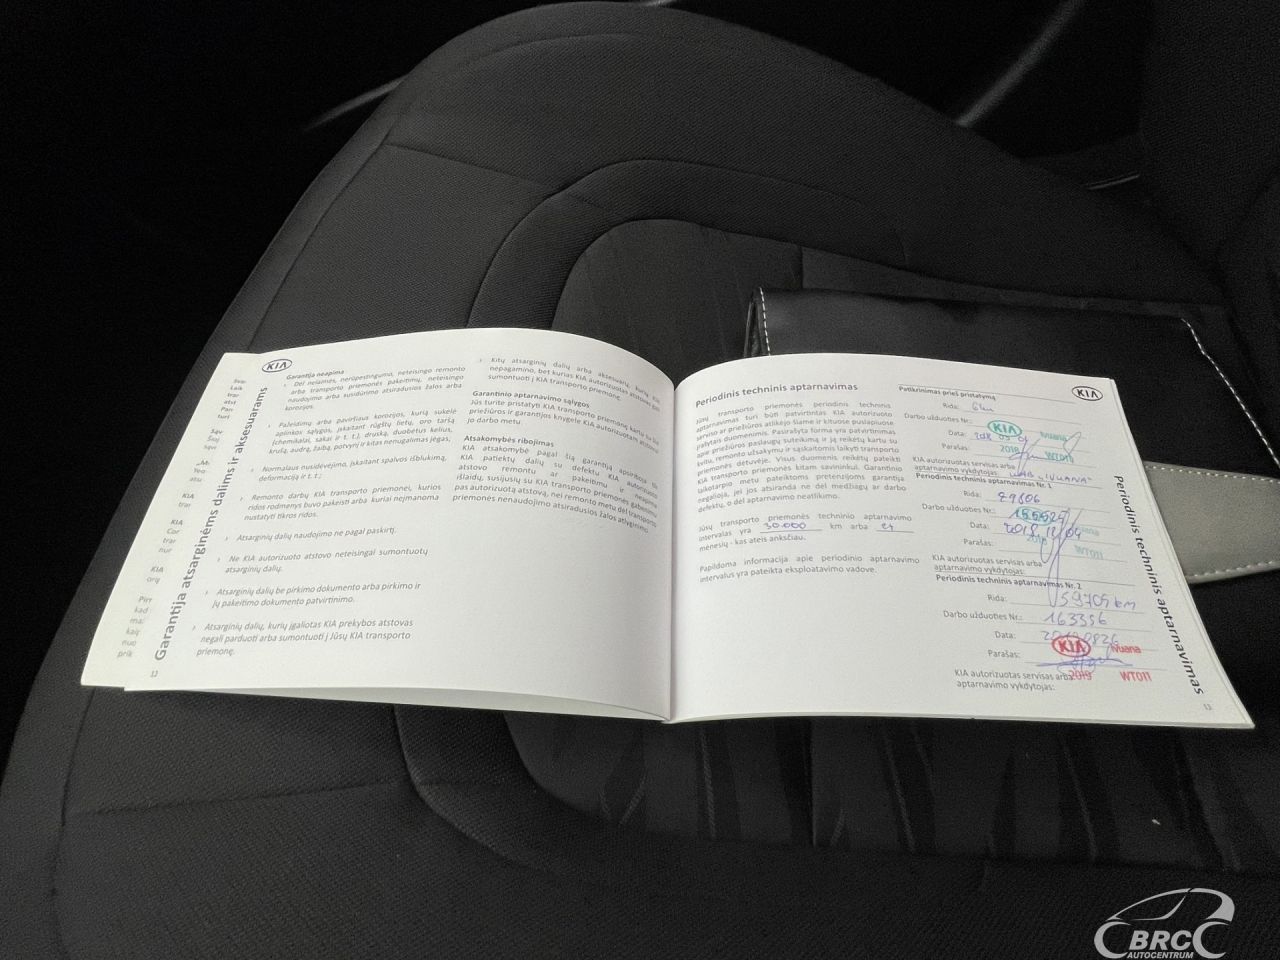 KIA
Garantija atsarginėms dalims ir aksesuarams
Garantija neapima
› Dėl nelaimės, nerūpestingumo, neteisingo remonto
arba transporto priemonės pakeitimų, neteisingo
naudojimo arba susidūrimo atsiradusios žalos arba
korozijos.
› Pažeidimų arba paviršiaus korozijos, kurią sukėlė
aplinkos sąlygos, įskaitant rūgštų lietų, oro taršą
(chemikalai, sakai ir t. t.), druską, duobėtus kelius,
krušą, audrą, žaibą, potvynį ir kitas nenugalimas jėgas.
› Normalaus nusidėvėjimo, įskaitant spalvos išblukimą,
deformaciją ir t. t.;
› Remonto darbų KIA transporto priemonei, kurios
ridos rodmenys buvo pakeisti arba kuriai neįmanoma
nustatyti tikros ridos.
› Atsarginių dalių naudojimo ne pagal paskirtį.
› Ne KIA autorizuoto atstovo neteisingai sumontuotų
atsarginių dalių.
› Atsarginių dalių be pirkimo dokumento arba pirkimo ir
jų pakeitimo dokumento patvirtinimo.
› Atsarginių dalių, kurių įgaliotas KIA prekybos atstovas
negali parduoti arba sumontuoti į Jūsų KIA transporto
priemonę.
12
› Kitų atsarginių dalių arba aksesuarų, kurių KIA
nepagamino, bet kurias KIA autorizuotas atstovas gali
sumontuoti į KIA transporto priemonę.
Garantinio aptarnavimo sąlygos
Jūs turite pristatyti KIA transporto priemonę kartu su šia
priežiūros ir garantijos knygele KIA autorizuotam atstovui
jo darbo metu
Atsakomybės ribojimas
KIA atsakomybė pagal šią garantiją apsiriboja tik
KIA pateiktų dalių su defektu KIA autorizuoto
atstovo remontu ar pakeitimu ir neapima
išlaidų, susijusių su KIA transporto priemonės gabenimu
pas autorizuotą atstovą, nei remonto metu dėl transporto
priemonės nenaudojimo atsiradusios žalos atlyginimo.
Periodinis techninis aptarnavimas
Jūsų transporto priemonės periodinis techninis
aptarnavimas turi būti patvirtintas KIA autorizuoto
serviso ar priežiūros atlikėjo šiame ir kituose puslapiuose
pateiktais duomenimis. Pasirašyta forma yra patvirtinimas
apie priežiūros paslaugų suteikimą ir ją reikėtų kartu su
kvitu, remonto užsakymu ir sąskaitomis laikyti transporto
priemonės dėtuvėje. Visus duomenis reikėtų pateikti
KIA transporto priemonės kitam savininkui. Garantinio
laikotarpio metu pateiktoms pretenzijoms garantija
negalioja, jei jos atsiranda ne dėl medžiagų ar darbo
defektų, o dėl aptarnavimo neatlikimo.
Jūsų transporto priemonės techninio aptarnavimo
intervalas yra 30.000 km arba 24
mėnesių - kas ateis anksčiau.
Papildoma informacija apie periodinio aptarnavimo
intervalus yra pateikta eksploatavimo vadove.
Patikrinimas prieš pristatymą
KIA
Rida: 6km
Darbo užduoties Nr.:
KIA Ivuana
Data: 2018 05 04
Parašas: 2018 WT011
KIA autorizuotas servisas arba
aptarnavimo vykdytojas: UAB "IVUANA"
Periodinis techninis aptarnavimas Nr. 1
Rida: 29806
Darbo užduoties Nr.:
Data: 2018 12 04
Parašas: 2018 WT011
KIA autorizuotas servisas arba
aptarnavimo vykdytojas:
Periodinis techninis aptarnavimas Nr. 2
Rida: 59705 km
Darbo užduoties Nr.: 163356
Data: 20190826
KIA Ivuana
Parašas:
KIA autorizuotas servisas arba 2019 WT011
aptarnavimo vykdytojas:
Periodinis techninis aptarnavimas
13
BRC
AUTOCENTRUM